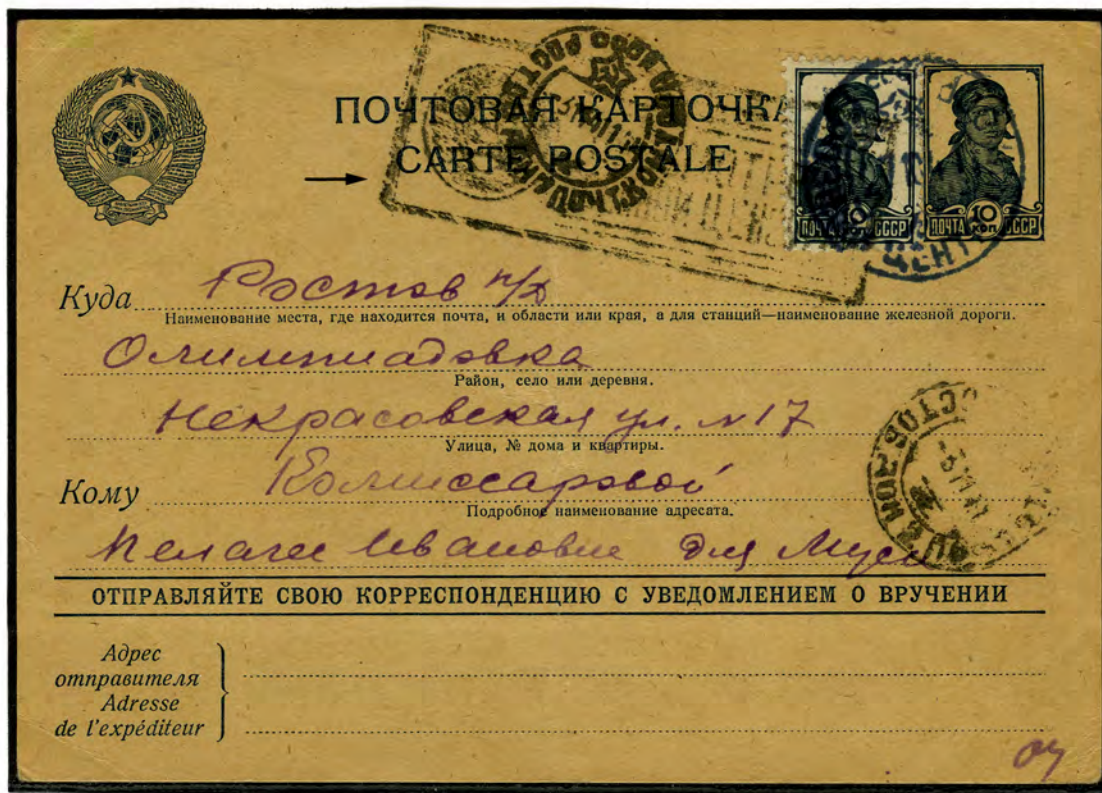 ПОЧТОВАЯ КАРТОЧКА
CARTE POSTALE
ПОЧТА 10 КОП. СССР
ПОЧТА 10 КОП. СССР
Куда Ростов н/Д
Наименование места, где находится почта, и области или края, а для станций—наименование железной дороги.
Олимпиадовка
Район, село или деревня.
Некрасовская ул. N 17
Улица, № дома и квартиры.
Кому Комиссаровой
Подробное наименование адресата.
Пелагее Ивановне для Муси
ОТПРАВЛЯЙТЕ СВОЮ КОРРЕСПОНДЕНЦИЮ С УВЕДОМЛЕНИЕМ О ВРУЧЕНИИ
Адрес
отправителя
Adresse
de l'expéditeur